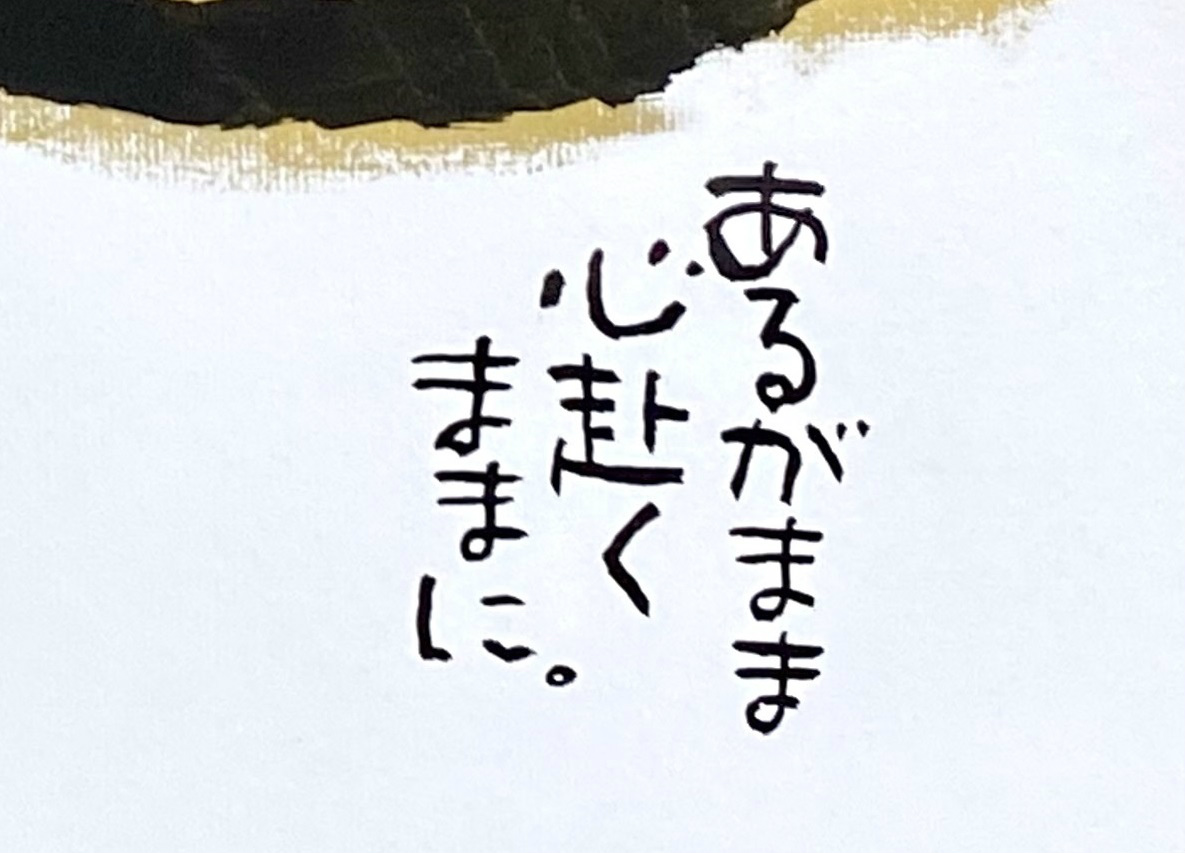 あるがまま
心赴く
ままに。